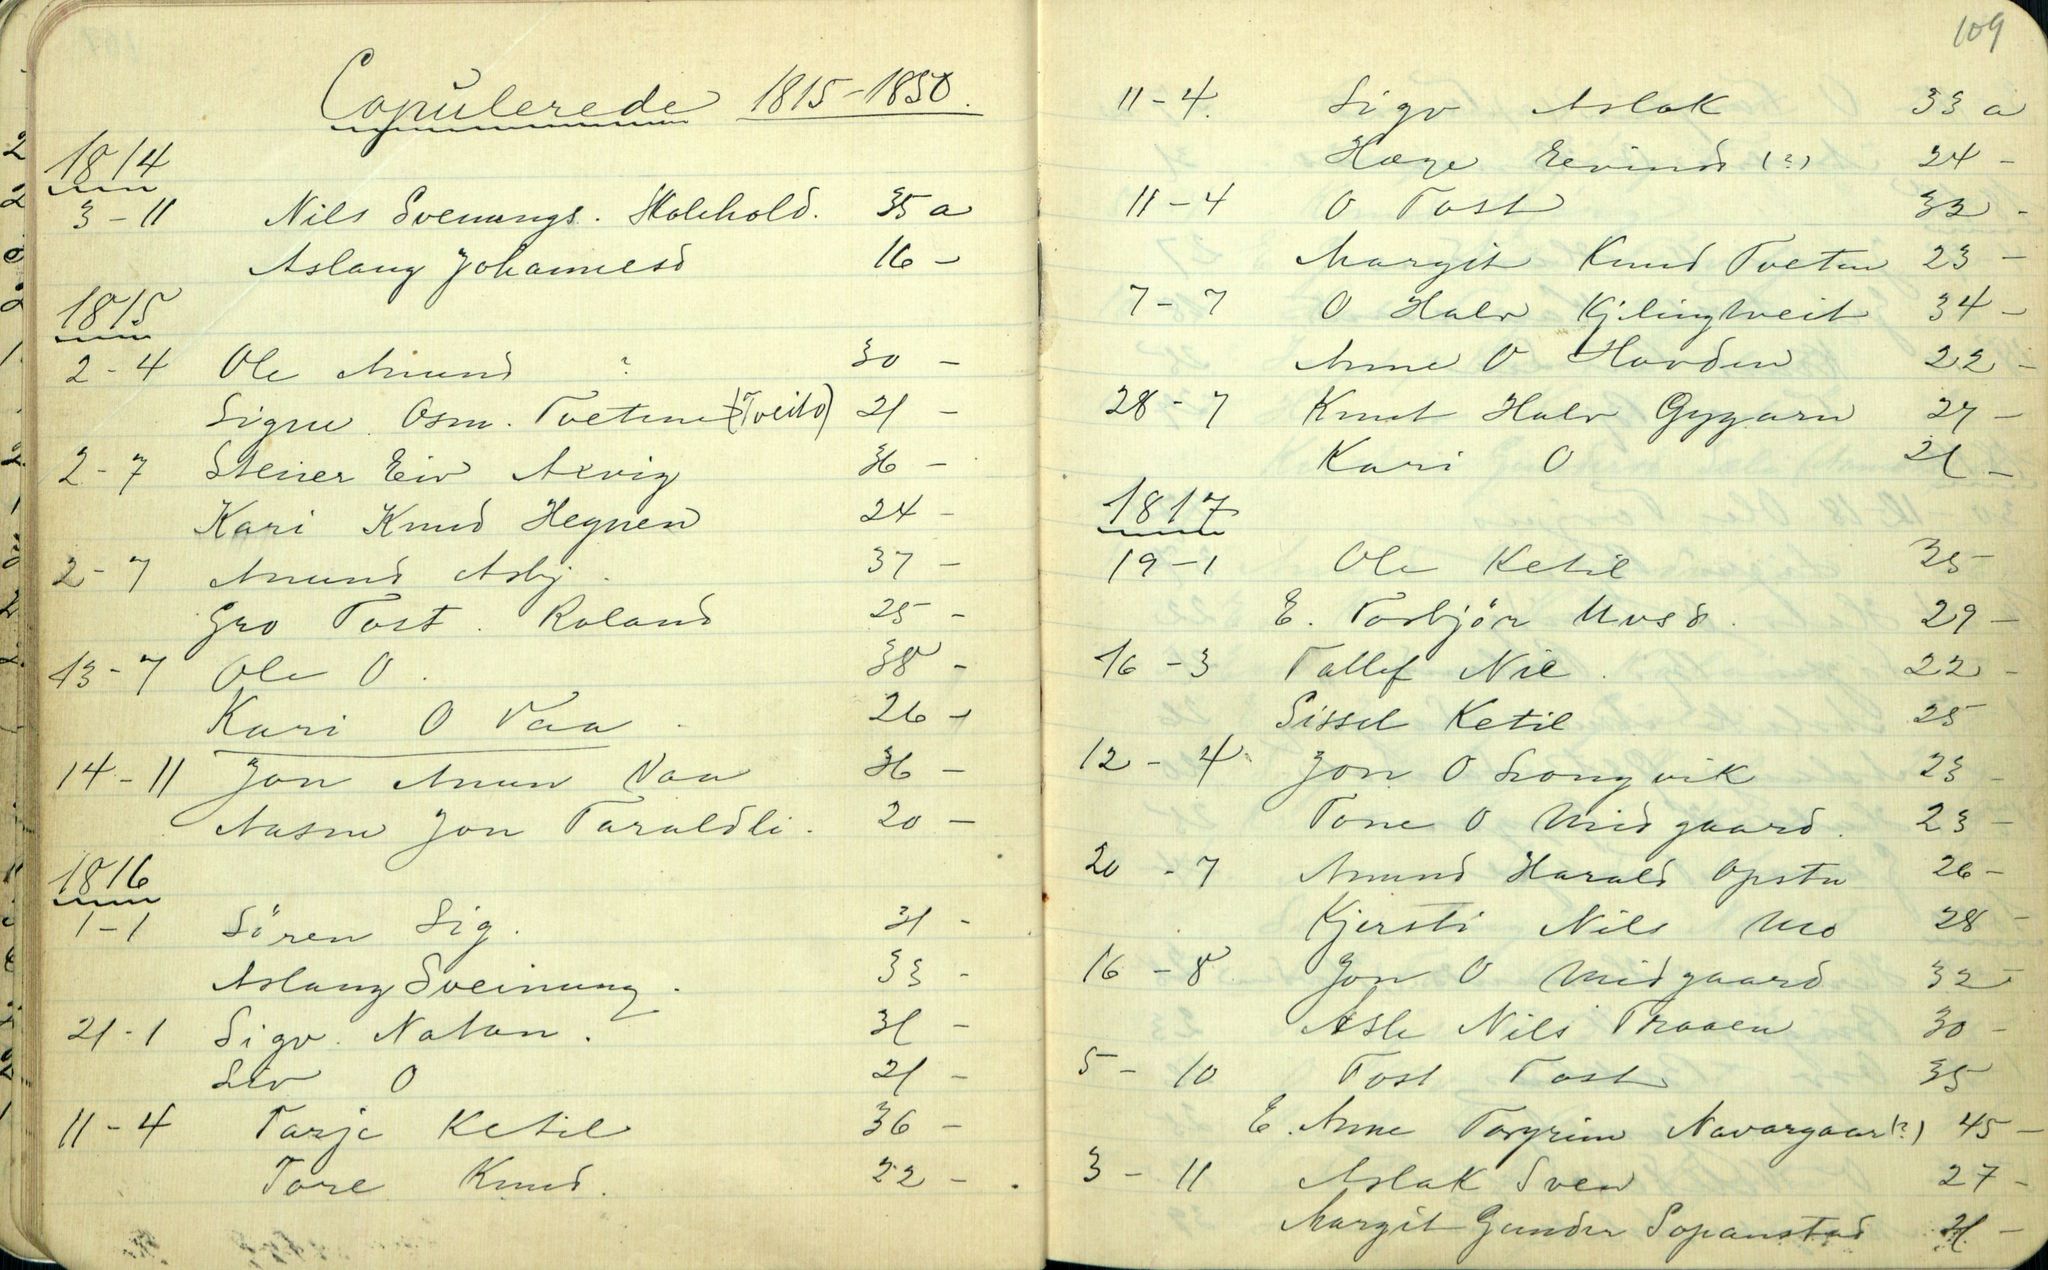 Copulerede 1815-1850.
1814
3-11 Nils Svenungs. Holehold. 35 a
Aslaug Johannesd 16 -
1815
2-4 Ole Amund ? 30 -
Signe Osm. Tveten (Tveito) 21 -
2-7 Stener Eiv Axvig 36 -
Kari Knud Hegnen 24 -
2-7 Amund Asbj. 37 -
Gro Tost. Roland 25 -
13-7 Ole O. 38 -
Kari O Vaa. 26 -
14-11 Jon Amun Vaa 36 -
Aasne Jon Taraldli. 20 -
1816
1-1 Sören Sig. 31 -
Aslaug Sveinung. 33 -
21-1 Sigv. Natan. 31 -
Liv O 21 -
11-4 Tarje Ketil 36 -
Tore Knud. 22 -
109
11-4. Sigv Aslak 33 a
Hæge Eevind (?) 24 -
11-4 O Tost 33 -
Margit Knud Tveten 23 -
7-7 O Halv Kjlingtveit 34 -
Anne O Hovden 22 -
28-7 Knut Halv Gygarn 27 -
Kari O 21 -
1817
19-1 Ole Ketil 35 -
E. Torbjör Uvsd. 29 -
16-3 Tallef Nil. 22 -
Sissel Ketil 25
12-4 Jon O Longvik 23 -
Tone O Midgaard. 23 -
20-7 Amund Harald Opstu 26 -
Kjersti Nils Mo 28 -
16-8 Jon O Midgaard 32 -
Asle Nils Traaen 30 -
5-10 Tost Tost 35
E. Anne Torgrim Navargaar (?) 45 -
3-11 Aslak Sven 27 -
Margit Gunder Sopanstad 21 -